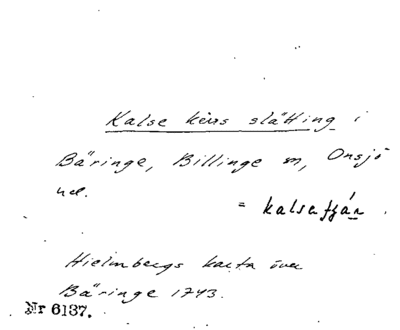 Kalse kärs slätting i
Bäringe, Billinge sn, Onsjö
hd.
= kalsatjár
Hielmbergs karta över
Bäringe 1743.
Nr 6137.